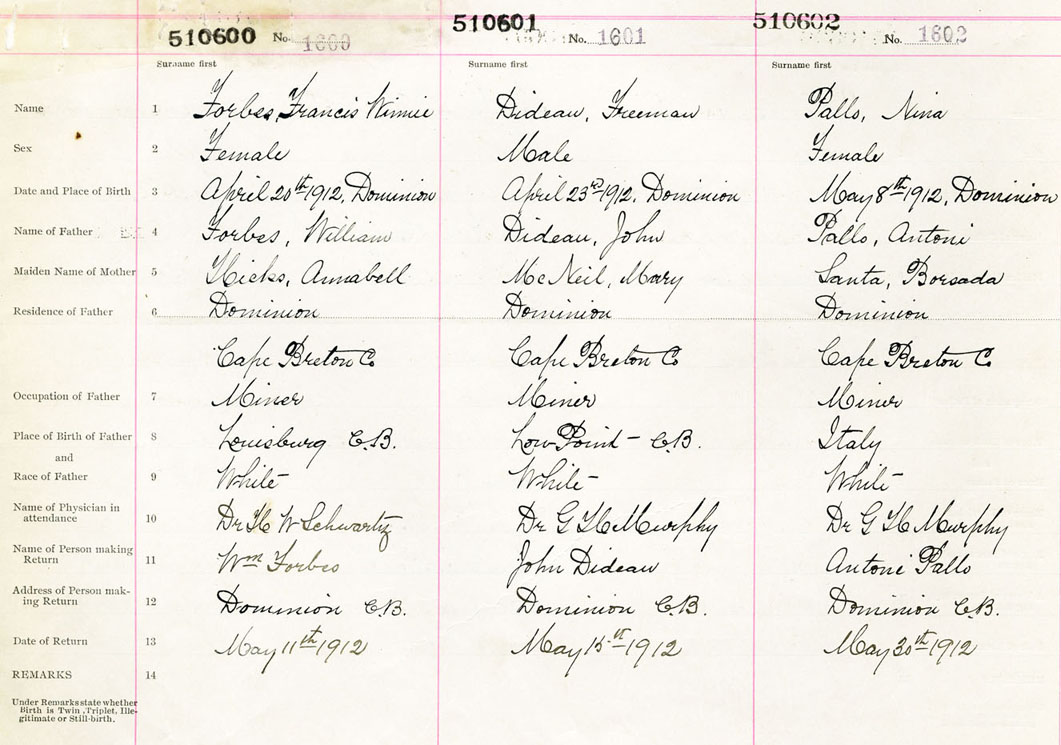 510600 No. 1600 510601 No. 1601 510602 No. 1602
Surname first Surname first Surname first
Name 1 Forbes, Francis Winnie Dideau, Freeman Pallo, Nina
Sex 2 Female Male Female
Date and Place of Birth 3 April 20th 1912, Dominion April 23rd 1912, Dominion May 8th 1912, Dominion
Name of Father 4 Forbes, William Dideau, John Pallo, Antoni
Maiden Name of Mother 5 Hicks, Annabell McNeil, Mary Santa, Borsada
Residence of Father 6 Dominion Dominion Dominion
Cape Breton Co Cape Breton Co Cape Breton Co
Occupation of Father 7 Miner Miner Miner
Place of Birth of Father 8 Louisburg C.B. Low Point - C.B. Italy
and
Race of Father 9 White White White
Name of Physician in
attendance 10 Dr H W Schwartz Dr G H Murphy Dr G H Murphy
Name of Person making
Return 11 Wm Forbes John Dideau Antoni Pallo
Address of Person mak-
ing Return 12 Dominion C.B. Dominion C.B. Dominion C.B.
Date of Return 13 May 11th 1912 May 1912 May 30th 1912
REMARKS 14
Under Remarks state whether
Birth is Twin, Triplet, Ille-
gitimate or Still-birth.